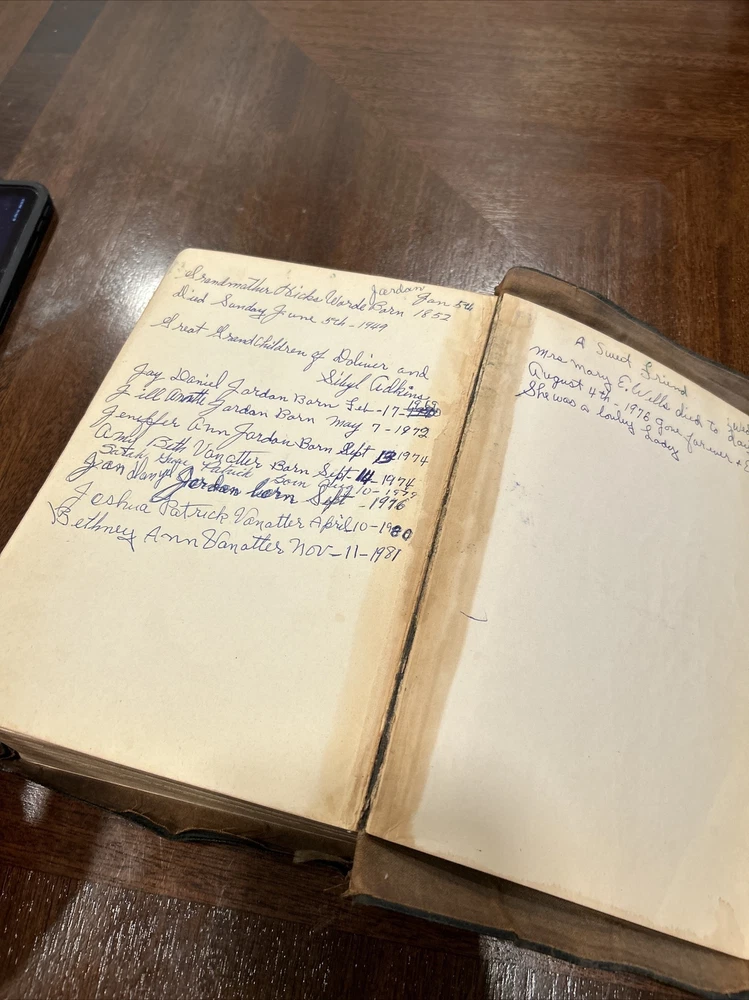 Grandmother Hicks Warde Jordan Born Jan 5th 1852
Died Sunday June 5th - 1949
Great Grandchildren of Doliver and
Sibyl Adkins
Jay Daniel Jordan Born Feb - 17 - 1969
Jill Jordan Born May 7 - 1972
Jeniffer Ann Jordan Born Sept 13 1974
Amy Beth Vanatter Born Sept 14 1974
Sarah Patrick Born Aug 10 - 1979
Jordan born Sept - 1976
Joshua Patrick Vanatter April 10 - 1980
Bethney Ann Vanatter Nov - 11 - 1981
A Sweet Friend
Mrs Mary E. Wells died to day
August 4th - 1976 gone forever
She was a lovley Lady